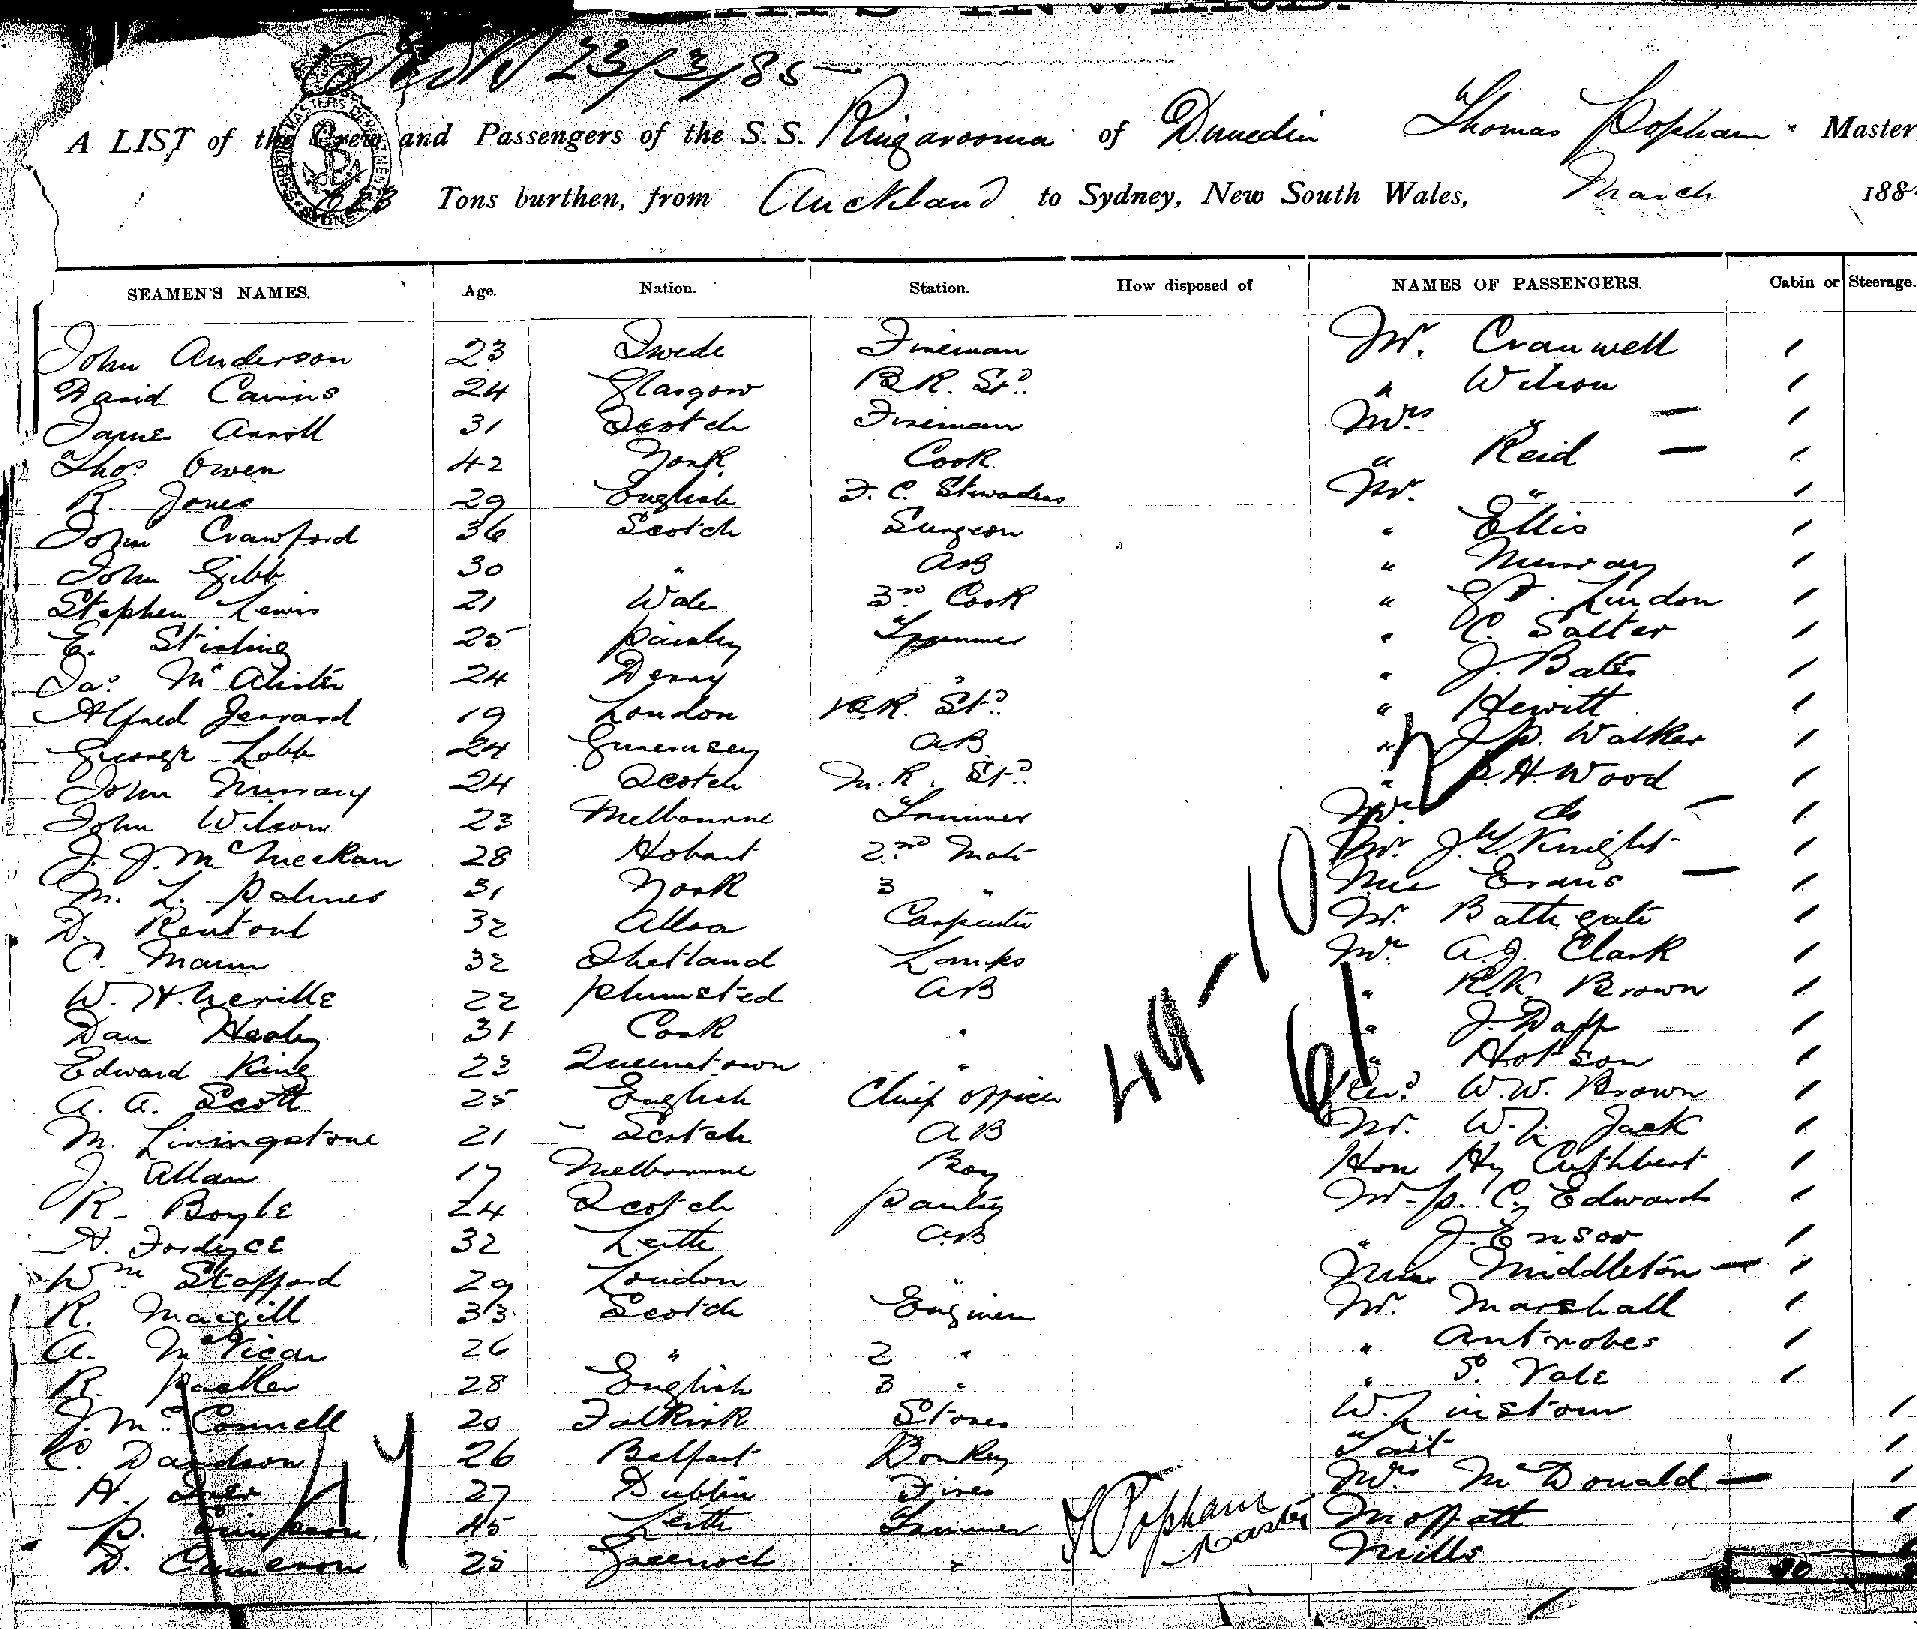 23/3/85
A LIST of the Crew and Passengers of the S.S. Ringarooma of Dunedin Thomas Popham Master,
Tons burthen, from Auckland to Sydney, New South Wales, March 188
SEAMEN'S NAMES. Age. Nation. Station. How disposed of NAMES OF PASSENGERS. Cabin or Steerage.
John Anderson 23 Swede Fireman Mr. Cranwell /
David Cairns 24 Glasgow B.R. Std. " Wilson /
Jame Arroll 31 Scotch Fireman Mrs " — /
Thos Owen 42 York Cook " Reid — /
R. Jones 29 English F.C. Stwadess Mr. " /
John Crawford 36 Scotch Surgeon " Ellis /
John Gibb 30 " AB " Murray /
Stephen Lewis 21 Wales 3rd Cook " Lindon /
E. Stirling 25 Paisley Trimmer " C. Salter /
Jas McAlister 24 Derry " " J. Bates /
Alfred Jerrard 19 London B.R. Std. " Hewitt /
George Lobb 24 Guernsey AB " J.P. Walker /
John Murray 24 Scotch M.R. Std. " P.H. Wood /
John Wilson 23 Melbourne Trimmer Mrs do — /
J. J. McMeekan 28 Hobart 2nd Mate Mr. Knight /
M. L. Palmer 31 York 3 " Miss Evans — /
D. Rentoul 32 Alloa Carpenter Mr. Bathgate /
C. Mann 32 Shetland Lamps Mr A.J. Clark /
W. H. Neville 22 Plumsted AB " R.K. Brown /
Dan Healy 31 Cork " " J. Dapp /
Edward King 23 Queenstown " " Hotson /
A. A. Scott 25 English Chief Officer Revd W.W. Brown /
M. Livingstone 21 Scotch AB Mr. Jack /
J. Allan 17 Melbourne Boy Hon Hy Cuthbert /
R. Boyle 24 Scotch Pantry Mr P. C. Edwards /
H. Fordyce 32 Leith AB " J. Ensor /
Wm Stafford 29 London " Miss Middleton — /
R. Macgill 33 Scotch Engineer Mr. Marshall /
A. McVicar 26 " 2 " " Antrobes /
R. 28 English 3 " " S. Vale /
J. McConnell 20 Falkirk Stores W. Linstow /
C. Davidson 26 Belfast Donkey Tait /
H. 27 Dublin Fires Mrs McDonald — /
P. Simpson 45 Leith Trimmer Moffatt /
D. Cameron 25 Greenock " Mills
49-10
61
T Popham
Master
30